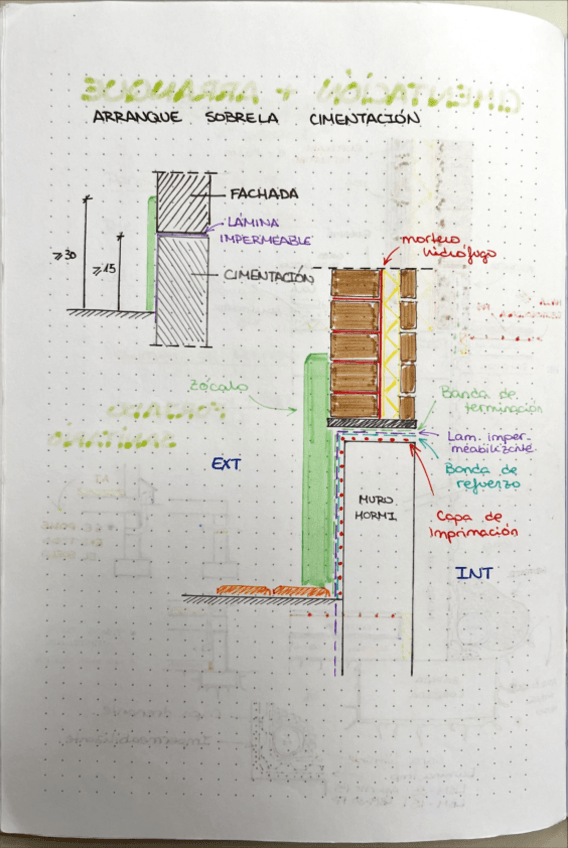 ARRANQUE SOBRELA CIMENTACIÓN
FACHADA
LÁMINA
IMPERMEABLE
≥30
≥15
CIMENTACIÓN
mortero
hidrófugo
Zócalo
Banda de
terminación
Lam. imper-
meabilizante
Banda de
refuerzo
EXT
MURO
HORMI.
Capa de
Imprimación
INT